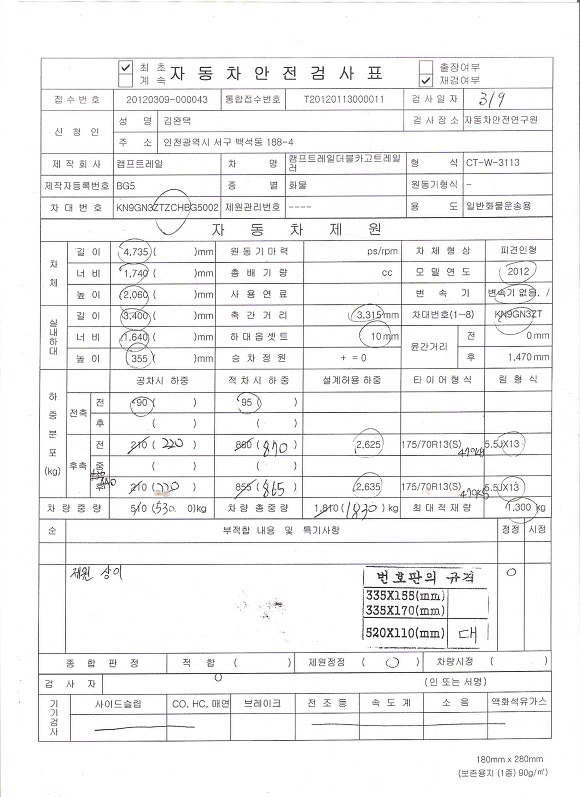 최초
계속
자동차안전검사표
출장여부
재검여부
접수번호 20120309-000043 통합접수번호 T20120113000011 검사일자 3/9
신청인 성명 김완택 검사장소 자동차안전연구원
주소 인천광역시 서구 백석동 188-4
제작회사 캠프트레일 차명 캠프트레일더블카고트레일러 형식 CT-W-3113
제작자등록번호 BG5 종별 화물 원동기형식 -
차대번호 KN9GN3ZTZCHBG5002 제원관리번호 ---- 용도 일반화물운송용
자동차제원
차체 길이 4,735 ( )mm 원동기마력 ps/rpm 차체형상 피견인형
너비 1,740 ( )mm 총배기량 cc 모델연도 2012
높이 2,060 ( )mm 사용연료 변속기 변속기 없음. /
실내하대 길이 3,400 ( )mm 축간거리 3,315mm 차대번호(1~8) KN9GN3ZT
너비 1,640 ( )mm 하대옵셋트 10mm 윤간거리 전 0mm
높이 355 ( )mm 승차정원 + = 0 후 1,470mm
하중분포(kg) 공차시 하중 적차시 하중 설계허용 하중 타이어형식 림형식
전축 전 90 ( ) 95 ( )
후 ( ) ( )
후축 전 210 (220) 860 (870) 2,625 175/70R13(S) 5.5JX13
중 ( ) ( )
후 210 (220) 855 (865) 2,635 175/70R13(S) 5.5JX13
차량중량 510 (530 0)kg 차량총중량 1,810 (1830) kg 최대적재량 1,300 kg
순 부적합 내용 및 특기사항 정정 시정
제원 상이 O
번호판의 규격
335X155(mm)
335X170(mm)
520X110(mm) 대
종합판정 적합 ( ) 제원정정 ( O ) 차량시정 ( )
검사자 (인 또는 서명)
기기검사 사이드슬립 CO. HC. 매연 브레이크 전조등 속도계 소음 액화석유가스
180mm x 280mm
(보존용지 (1종) 90g/㎡)